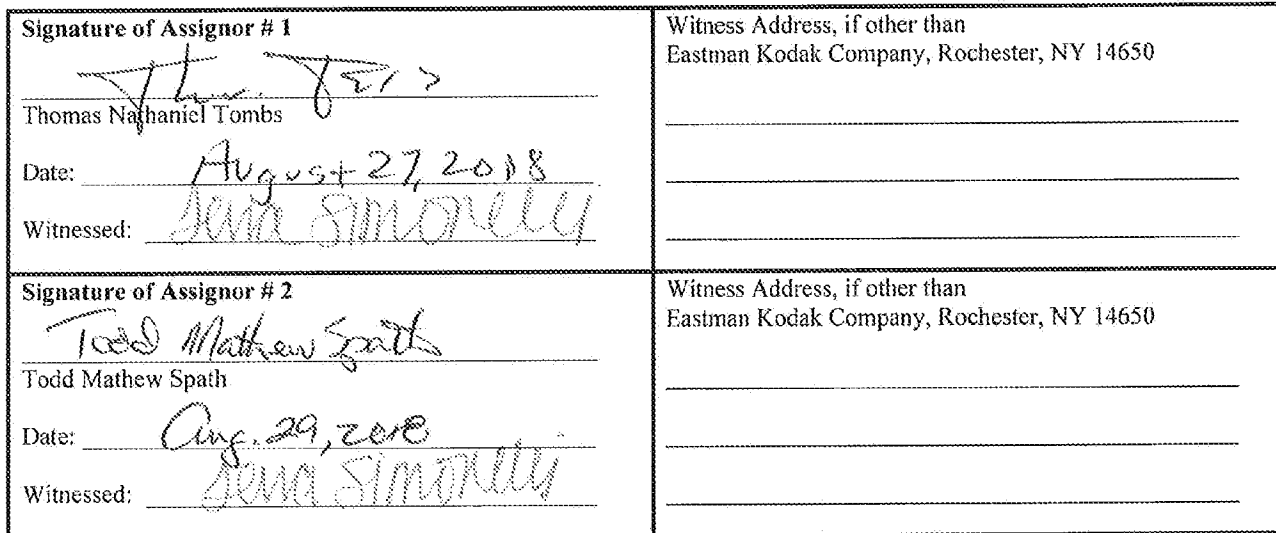 Signature of Assignor # 1
Thomas Nathaniel Tombs
Date: August 27, 2018
Witnessed: Simonelli
Witness Address, if other than
Eastman Kodak Company, Rochester, NY 14650
Signature of Assignor # 2
Todd Mathew Spath
Todd Mathew Spath
Date: Aug. 29, 2018
Witnessed: Simonelli
Witness Address, if other than
Eastman Kodak Company, Rochester, NY 14650